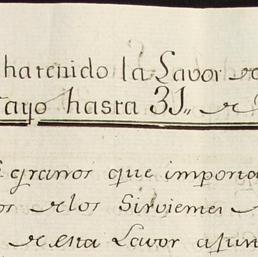 ha tenido la Lavor de
ayo hasta 31,, de
granos que importa
os de los Sirvientes
de esta Lavor apun